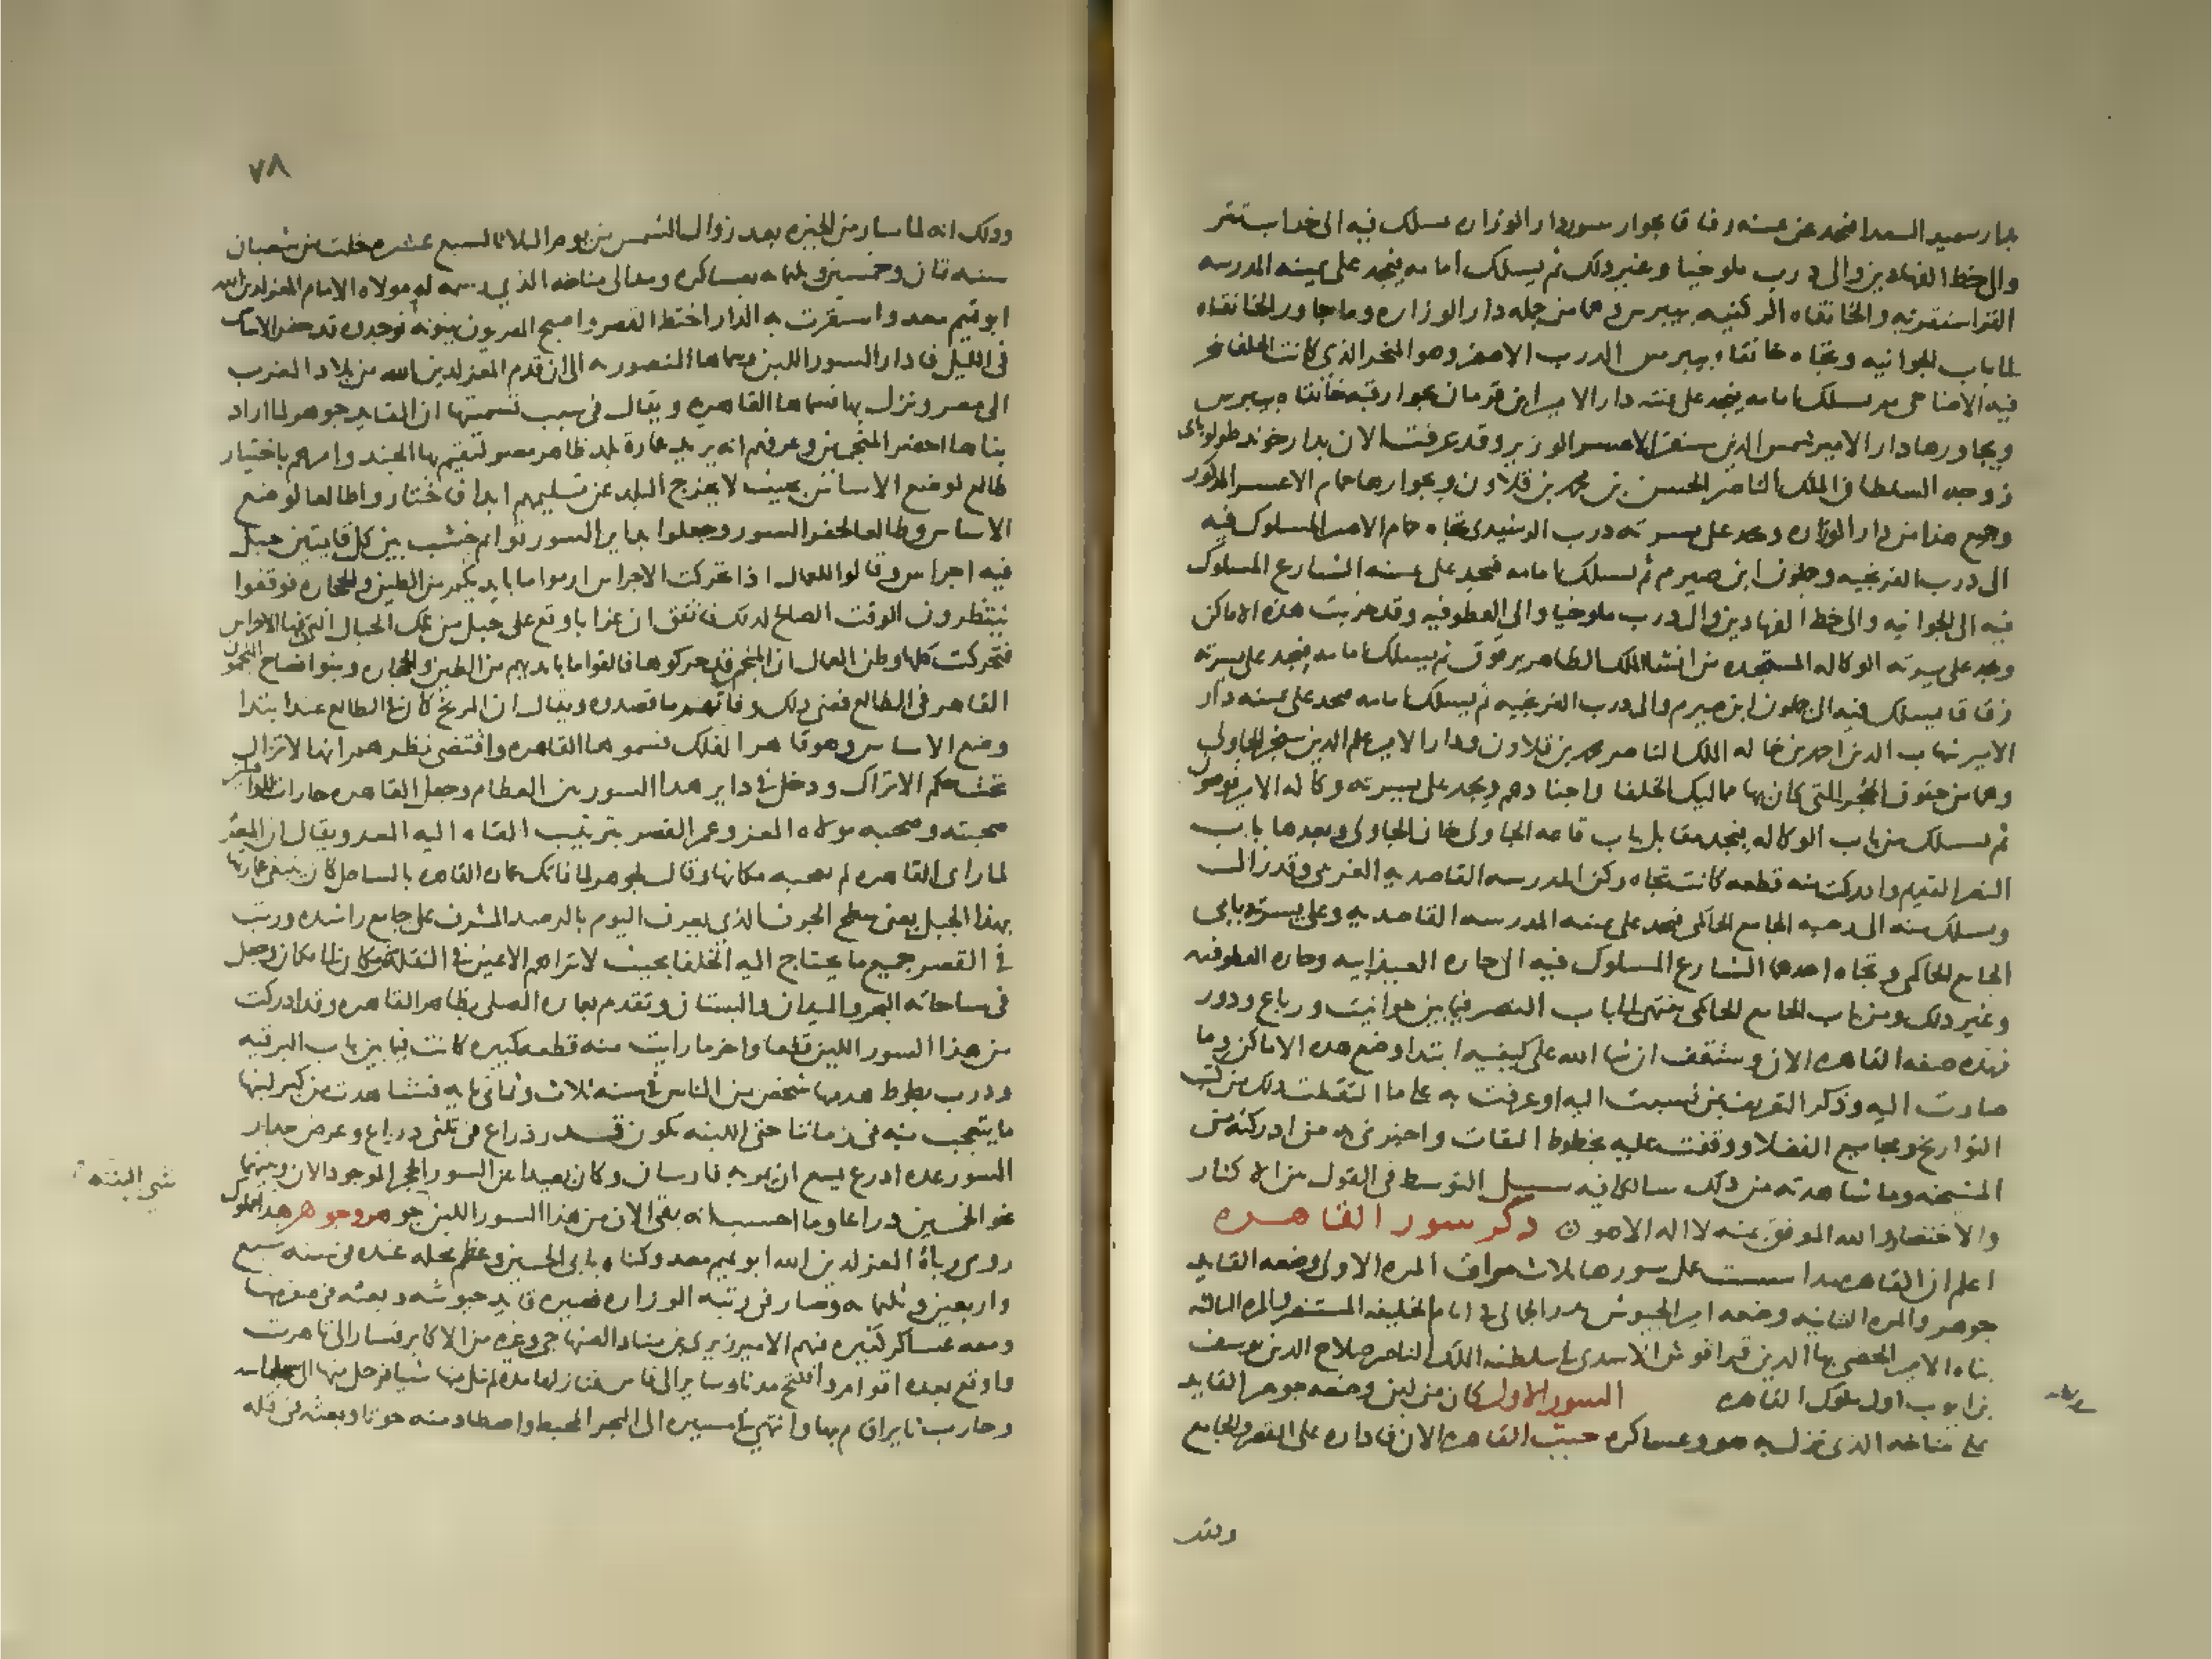 بدار سعيد السعدا فتجد عن يمينه زقاقا بجوار سور دار الوزاره يسلك فيه الى خرايب تتر
والى خط الفهادين والى درب ملوخيا وغير ذلك ثم يسلك امامه فيجد على يمينه المدرسه
القراسنقريه والخانقاه الركنيه بيبرس وهما من جمله دار الوزاره وما جاور الخانقاه
الى باب الجوانيه وتجاه خانقاه بيبرس الدرب الاصفر وهو المنحر الذي كانت الخلفا تنحر
فيه الاضاحي ثم يسلك امامه فيجد على يمنته دار الامير ابن قرمان بجوار قبه خانقاه بيبرس
ويجاورها دار الامير شمس الدين سنقر الاعسر الوزير وقد عرفت الان بدار خوند طولوباى
زوجه السلطان الملك الناصر الحسن بن محمد بن قلاون وبجوارها حمام الاعسر المذكور
وجميع هذا من دار الوزاره ويجد على يسرته درب الرشيدي تجاه حمام الاعسر المسلوك فيه
الى درب الفرنجيه وجملون ابن صيرم ثم يسلك امامه فيجد على يمنته الشارع المسلوك
فيه الى الجوانيه والى خط الفهادين والى درب ملوخيا والى العطوفيه وقد خربت هذه الاماكن
ويجد على يسرته الوكاله المستجده من انشا الملك الظاهر برقوق ثم يسلك امامه فيجد على يسرته
زقاقا يسلك فيه الى جملون ابن صيرم والى درب الفرنجيه ثم يسلك امامه فيجد على يمنته دار
الامير شهاب الدين احمد بن خاله الملك الناصر محمد بن قلاون ودار الامير علم الدين سنجر الجاولي
وهما من حقوق الحجر التي كان بها مماليك الخلفا واجنادهم ويجد على يسرته وكاله الامير قوصون
ثم يسلك من باب الوكاله فيجد مقابل باب قاعه الجاولي خان الجاولي وبعدها باب
النصر القديم وادركت منه قطعه كانت تجاه ركن المدرسه القاصديه الغربي وقد زال
ويسلك منه الى رحبه الجامع الحاكمي فيجد على يمنته المدرسه القاصديه وعلى يسرته بابى
الجامع الحاكمي وتجاه احدهما الشارع المسلوك فيه الى حاره العيدانيه وحاره العطوفيه
وغير ذلك ومن باب الجامع الحاكمي ينتهى الى باب النصر فيما بين حوانيت ورباع ودور
فهذه صفه القاهره الان وستقف ان شا الله على كيفيه ابتدا وضع هذه الاماكن وما
صارت اليه وذكر التعريف بمن نسبت اليه او عرفت به على ما التقطت ذلك من كتب
التواريخ ومجاميع الفضلا ووقفت عليه بخطوط الثقات واخبرني به من ادركته من
المشيخه وما شاهدته من ذلك سالكا فيه سبيل التوسط في القول من الاكثار
والاختصار والله الموفق بمنه لا اله الا هو ن ذكر سور القاهره
اعلم ان القاهره مذ اسست عمل سورها ثلاث مرات المره الاولى وضعه القايد
جوهر والمره الثانيه وضعه امير الجيوش بدر الجمالي في ايام الخليفه المستنصر والمره الثالثه
بناه الامير الخصي بها الدين قراقوش الاسدي في سلطنه الملك الناصر صلاح الدين يوسف
بن ايوب اول ملوك القاهره السور الاول كان من لبن وضعه جوهر القايد
على مناخه الذي نزل به هو وعساكره حيث القاهره الان فاداره على القصر والجامع
٧٨
وذلك انه لما سار من الجيزه بعد زوال الشمس من يوم الثلاثا لسبع عشره خلت من شعبان
سنه ثمان وخمسين وثلثمايه بعساكره وقصد الى مناخه الذي رسمه له مولاه الامام المعز لدين الله
ابو تميم معد واستقرت به الدار اختط القصر واصبح المصريون يهنونه فوجدوه قد حفر الاساس
في الليل فادار السور اللبن وسماها المنصوريه الى ان قدم المعز لدين الله من بلاد المغرب
الى مصر ونزل بها فسماها القاهره ويقال في سبب تسميتها ان القايد جوهر لما اراد
بناها احضر المنجمين وعرفهم انه يريد عماره بلد ظاهر مصر لتقيم بها الجند وامرهم باختيار
طالع لوضع الاساس بحيث لا يخرج البلد عن نسلهم ابدا فاختاروا طالعا لوضع
الاساس وطالعا لحفر السور وجعلوا بداير السور قوايم خشب بين كل قايمتين حبل
فيه اجراس وقالوا للعمال اذا تحركت الاجراس ارموا ما بايديكم من الطين والحجاره فوقفوا
ينتظرون الوقت الصالح لذلك فاتفق ان غرابا وقع على حبل من تلك الحبال التي فيها الاجراس
فتحركت كلها وظن العمال ان المنجمين قد حركوها فالقوا ما بايديهم من الطين والحجاره وبنوا فصاح المنجمون
القاهر في الطالع فمضى ذلك وفاتهم ما قصدوه ويقال ان المريخ كان في الطالع عند ابتدا
وضع الاساس وهو قاهر الفلك فسموها القاهره واقتضى نظرهم انها لا تزال
تحت حكم الاتراك ودخل في داير هذا السور بير العظام وجعل القاهره حارات للواصلين
صحبته وصحبه مولاه المعز وعمر القصر بترتيب القاه اليه المعز ويقال ان المعز
لما راى القاهره لم يعجبه مكانها وقال لجوهر لما فاتك عماره القاهره بالساحل كان ينبغي عمارتها
بهذا الجبل يعني سطح الجرف الذي يعرف اليوم بالرصد المشرف على جامع راشده ورتب
في القصر جميع ما يحتاج اليه الخلفا بحيث لا تراهم الاعين في النقله من مكان الى مكان وجعل
في ساحاته البحر والميدان والبستان وتقدم بعماره المصلى بظاهر القاهره وقد ادركت
من هذا السور اللبن قطعا واخر ما رايت منه قطعه كبيره كانت فيما بين باب البرقيه
ودرب بطوط هدمها شخص من الناس في سنه ثلاث وثماني مايه فشاهدت من كبر لبنها
ما يتعجب منه في زماننا حتى اللبنه تكون قدر ذراع في ثلثي ذراع وعرض جدار
السور عده اذرع يسع ان يمر به فارسان وكان بعيدا عن السور الحجر الموجود الان وبينهما
نحو الخمسين ذراعا وما احسب انه بقي الان من هذا السور اللبن شي البته
جوهر وجوهر هذا مملوك
رومي رباه المعز لدين الله ابو تميم معد وكناه بابي الحسين وعظم محله عنده في سنه سبع
واربعين وثلثمايه وصار في رتبه الوزاره فصيره قايد جيوشه وبعثه في صفر منها
ومعه عساكر كثيره فيهم الامير زيري بن مناد الصنهاجي وغيره من الاكابر فسار الى تاهرت
واوقع بعده اقوام وافتتح مدنا وسار الى فاس فنازلها مده لم ينل منها شيا فرحل منها الى سجلماسه
وحارب ثايرا قام بها وانتهى في مسيره الى البحر المحيط واصطاد منه حوتا وبعثه في قله